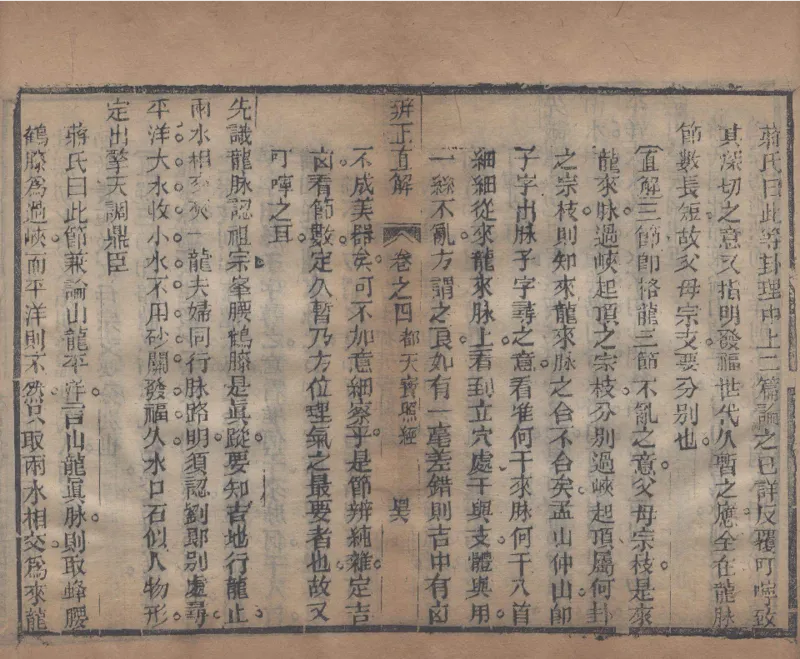 蔣氏曰此等卦理中上二篇論之已詳反覆叮嚀致
其深切之意又指明發福世代久暫之應全在龍脉
節數長短故父母宗支要分別也
直解三節即格龍三節不亂之意父母宗枝是來
龍來脉過峽起頂之宗枝分別過峽起頂屬何卦
之宗枝則知來龍來脉之合不合矣孟山仲山卽
子字出脉子字尋之意看准何干來脉何干入首
細細從來龍來脉上看到立穴處干與支體與用
一絲不亂方謂之良如有一毫差錯則吉中有凶
辨正直解 卷之四 都天寶照經
不成美器矣可不加意細察乎是節辨純雜定吉
凶看節數定久暫乃方位理氣之最要者也故又
叮嚀之耳
先識龍脉認祖宗蜂腰鶴膝是眞蹤要知吉地行龍止
兩水相交夾一龍夫婦同行脉路明須認劉郎別處尋
平洋大水收小水不用砂關發福久水口石似人物形
定出擎天調鼎臣
蔣氏曰此節兼論山龍平洋言山龍眞脉則取蜂腰
鶴膝爲過峽而平洋則不然只取兩水相交爲來龍